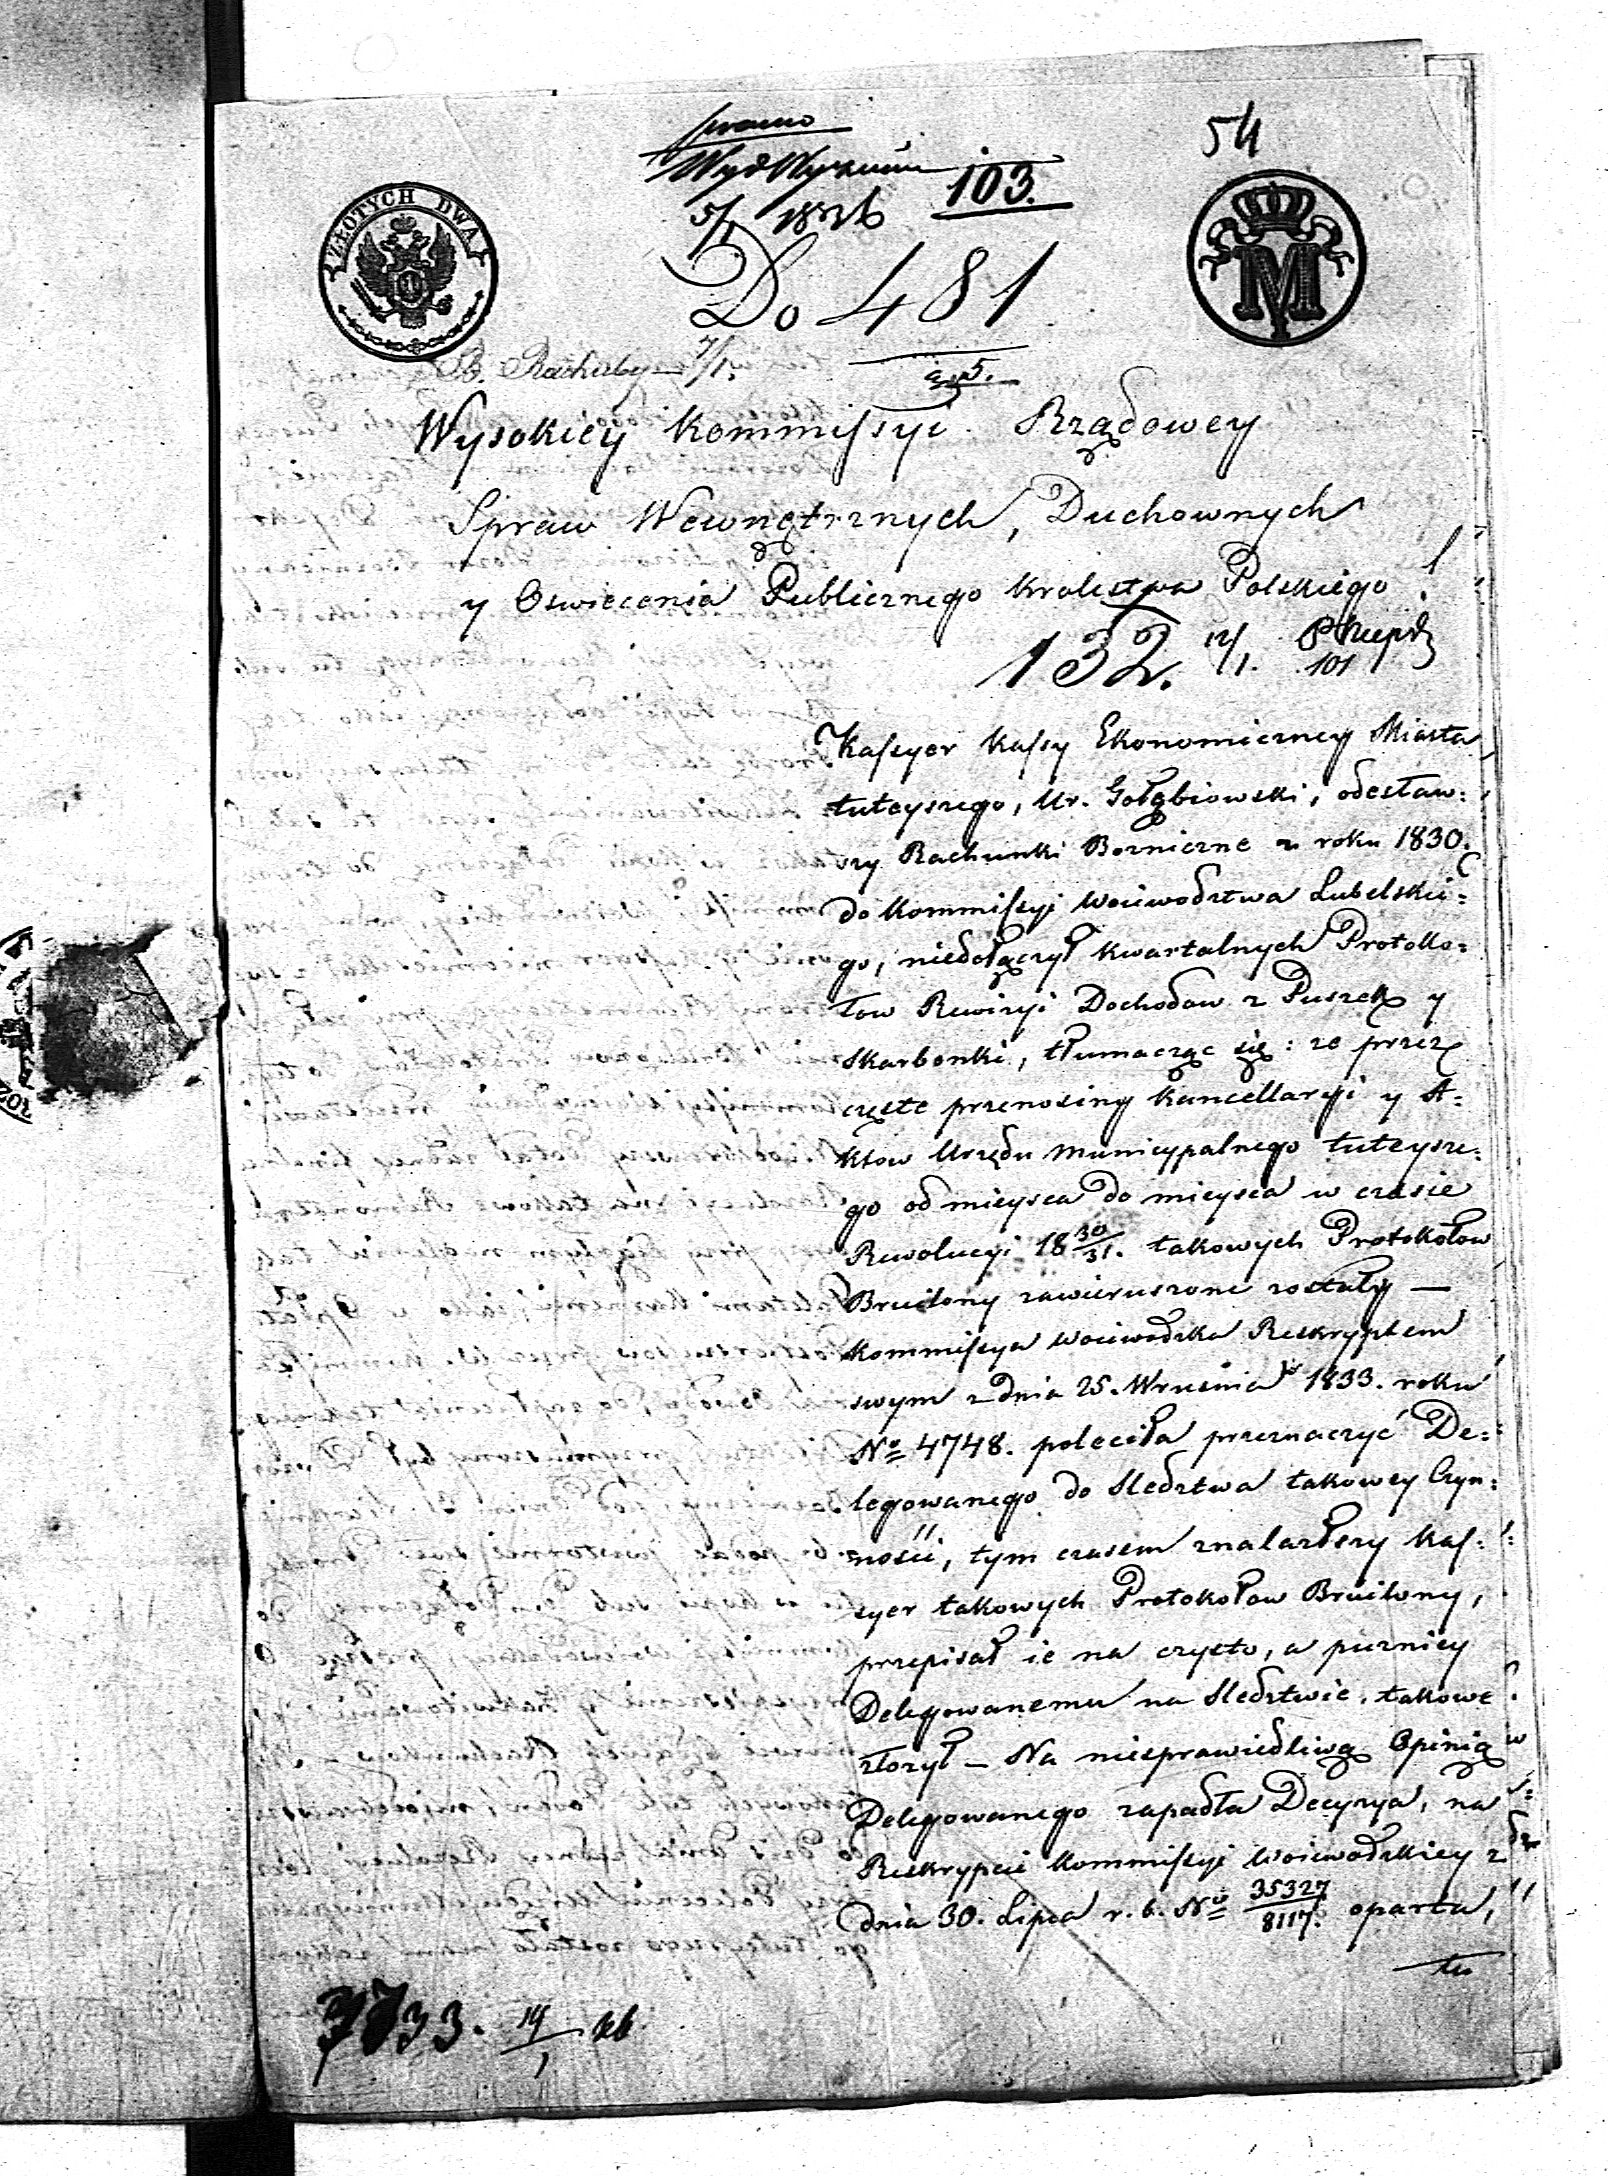 54
Wyd Wyznań
103.
5/1 1836
ZŁOTYCH DWA
M
Do 481
7/1.
Wysokiey Kommissyi Rządowey
Spraw Wewnętrznych, Duchownych
y Oswiecenia Publicznego Krolestwa Polskiego !
132. 12/1.
101
Kassyer Kassy Ekonomiczney Miasta
tuteyszego, Ur. Gołębiowski, odesław:
szy Rachunki Bozniczne z roku 1830.
do Kommissyi Woiewodztwa Lubelskie:
go, niedołączył kwartalnych Protoko:
łow Rewizyi Dochodow z Puszek y
Skarbonki, tłumacząc się: ze przez
częste przenosiny Kancellaryi y A:
ktow Urzędu Municypalnego tuteysze:
go od mieysca do mieysca w czasie
Rewolucyi 18 30/31. takowych Protokołow
Bruilony zawieruszone zostały —
Kommissya Woiewodzka Reskryptem
swym z dnia 25. Wrzesnia 1833. roku
No 4748. poleciła przeznaczyć De:
legowanego do Sledztwa takowey Czyn:
ności, tym czasem znalazłszy Kas:
syer takowych Protokołow Bruilony,
przepisał ie na czysto, a puzniey
Delegowanemu na Sledztwie, takowe
złozył — Na niesprawiedliwą Opinią
Delegowanego zapadła Decyzya, na
Reskrypcie Kommissyi Woiewodzkiey z
dnia 30. Lipca r. b. No 35327/8117. oparta,
to
7733. 14/1